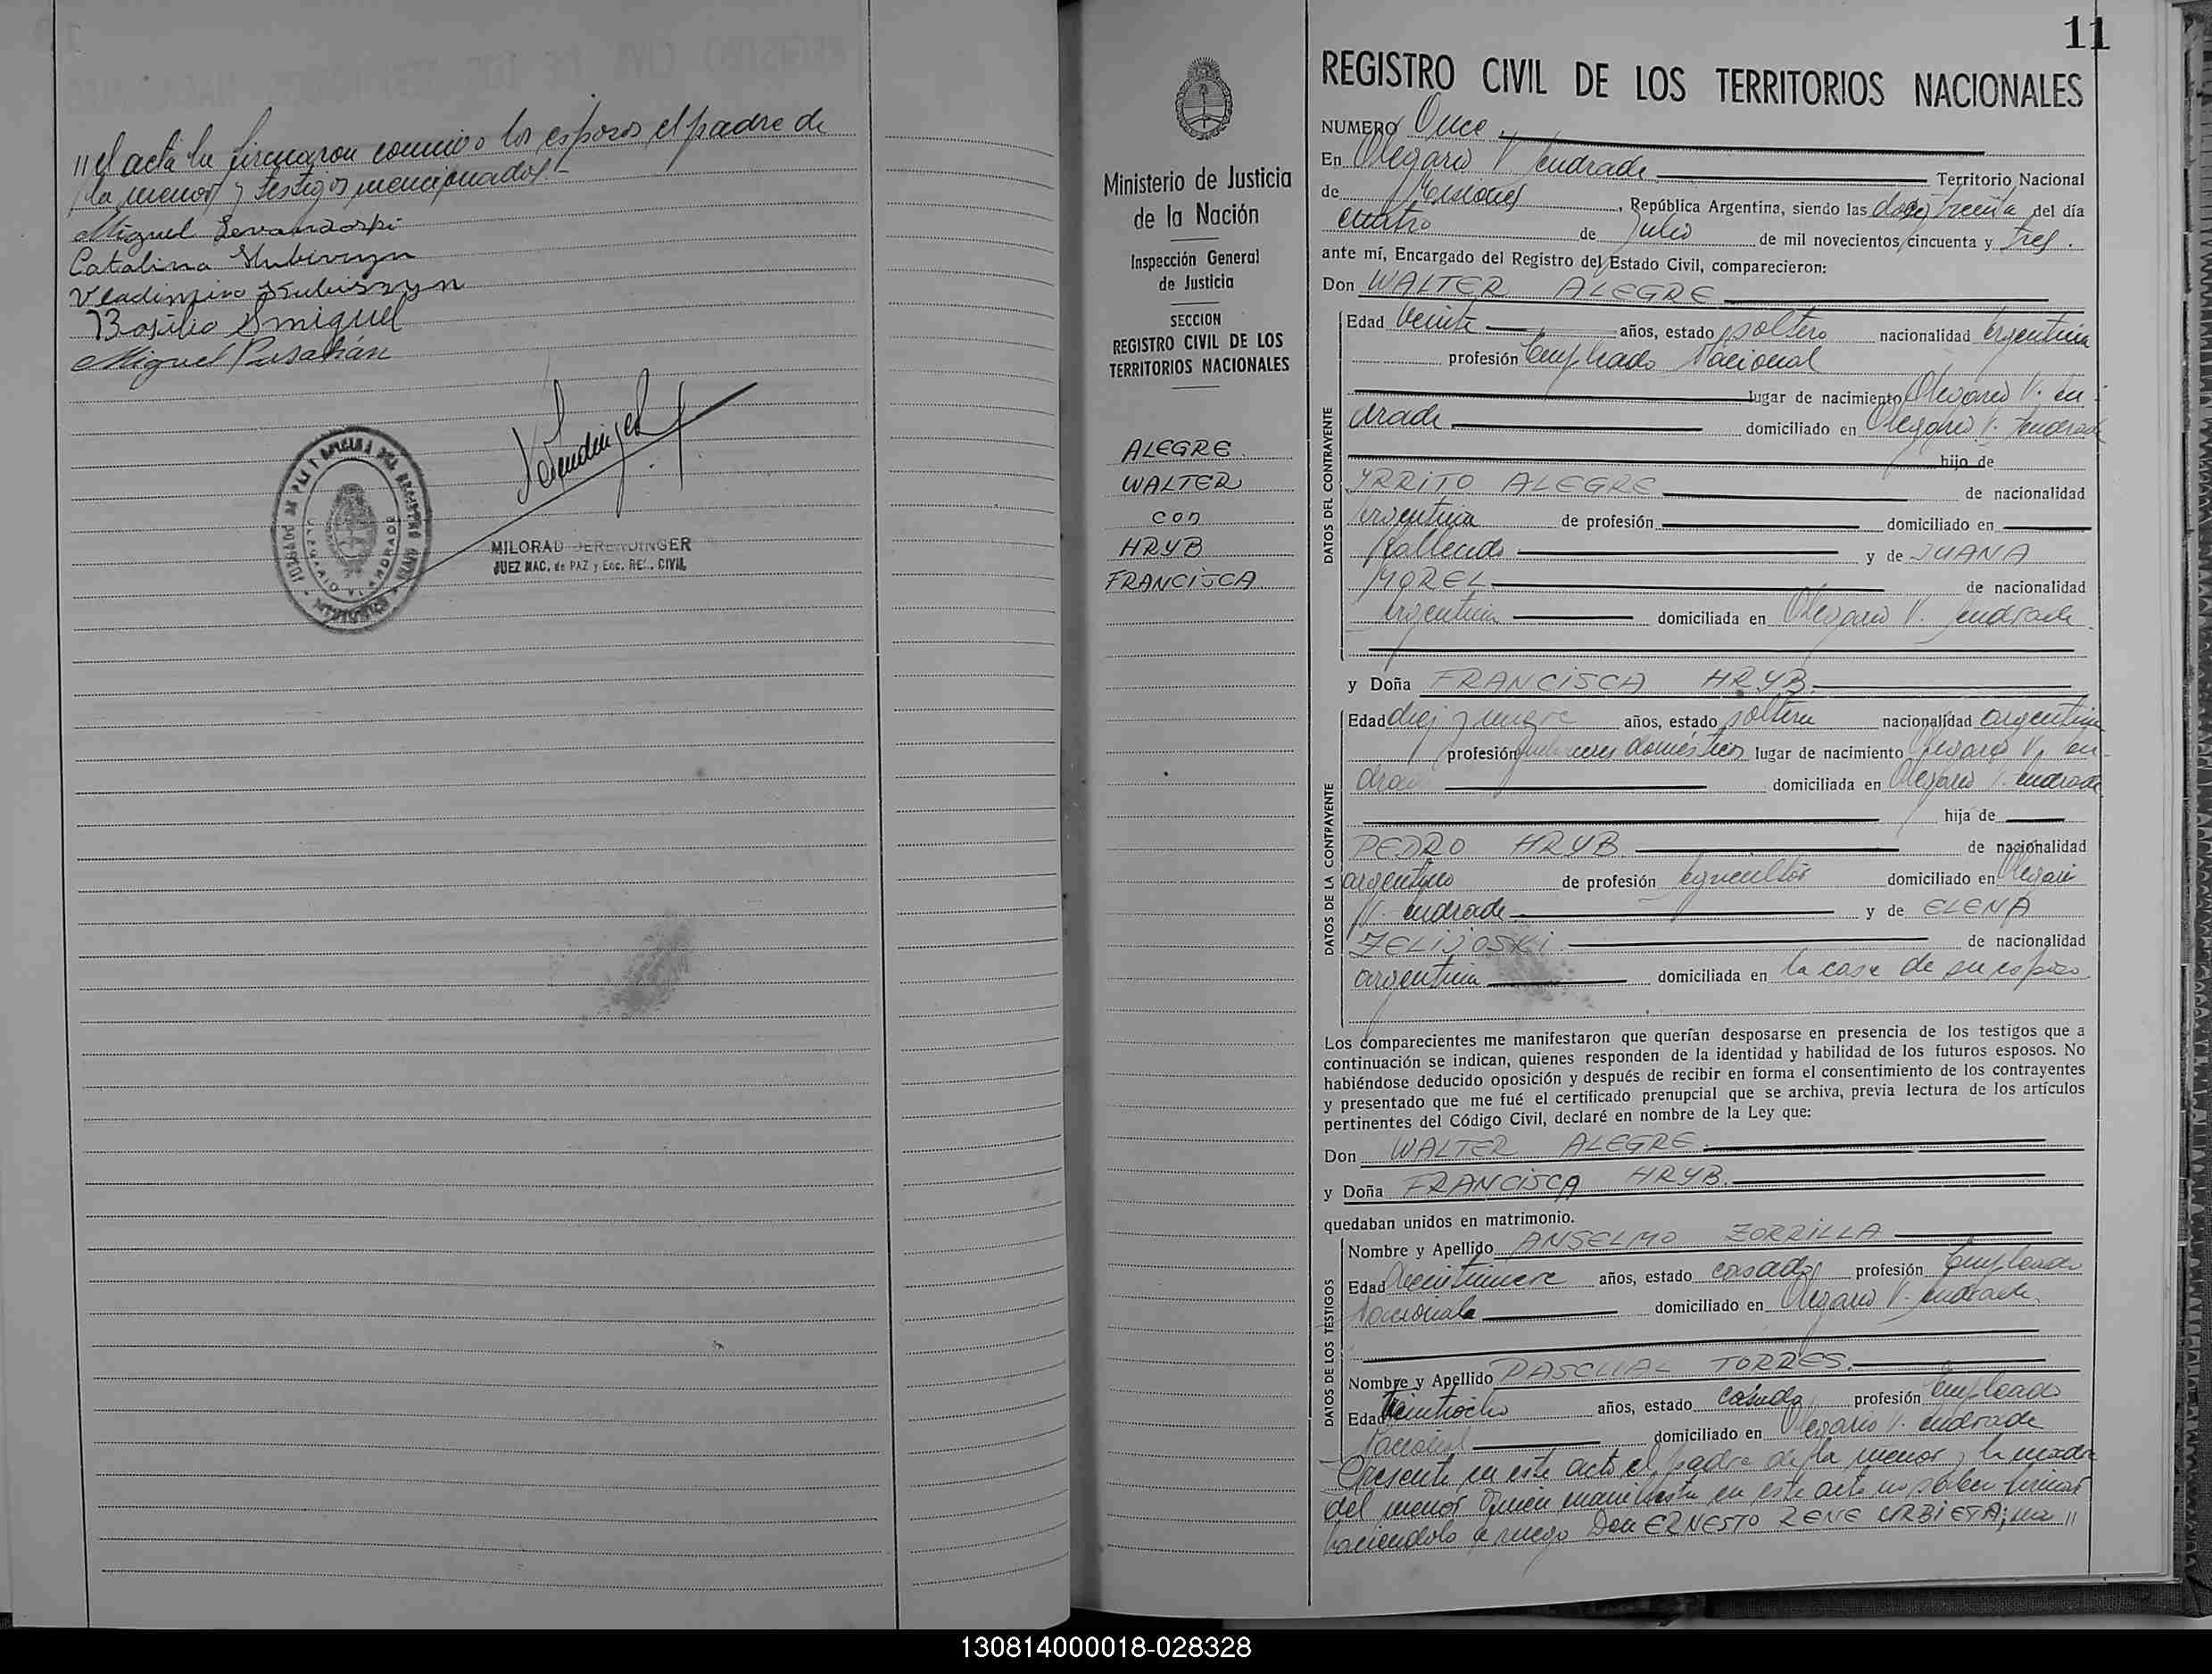 " el acta la firmaron conmigo los esposos, el padre de
la menor y testigos mencionados.-
Miguel Levandoski
Catalina
Vladimiro
Basilio Smiguel
Miguel
MILORAD DERENDINGER
JUEZ NAC. de PAZ y Enc. REG. CIVIL
11
Ministerio de Justicia
de la Nación
Inspección General
de Justicia
SECCION
REGISTRO CIVIL DE LOS
TERRITORIOS NACIONALES
ALEGRE
WALTER
con
HRYB
FRANCISCA
REGISTRO CIVIL DE LOS TERRITORIOS NACIONALES
NUMERO Once
En Olegario V. Andrade Territorio Nacional
de Misiones, República Argentina, siendo las doce y treinta del día
cuatro de Julio de mil novecientos cincuenta y tres.
ante mí, Encargado del Registro del Estado Civil, comparecieron:
Don WALTER ALEGRE
DATOS DEL CONTRAYENTE
Edad veinte años, estado soltero nacionalidad argentina
profesión Empleado Nacional
lugar de nacimiento Olegario V. An-
drade domiciliado en Olegario V. Andrade
hijo de
YRRITO ALEGRE de nacionalidad
argentina de profesión domiciliado en
fallecido y de JUANA
MOREL de nacionalidad
argentina domiciliada en Olegario V. Andrade
y Doña FRANCISCA HRYB.
DATOS DE LA CONTRAYENTE
Edad diez y nueve años, estado soltera nacionalidad argentina
profesión quehaceres domésticos lugar de nacimiento Olegario V. An-
drade domiciliada en Olegario V. Andrade
hija de
PEDRO HRYB de nacionalidad
argentino de profesión agricultor domiciliado en Olegario
V. Andrade y de ELENA
ZELIJOSKI de nacionalidad
argentina domiciliada en la casa de su esposo
Los comparecientes me manifestaron que querían desposarse en presencia de los testigos que a
continuación se indican, quienes responden de la identidad y habilidad de los futuros esposos. No
habiéndose deducido oposición y después de recibir en forma el consentimiento de los contrayentes
y presentado que me fué el certificado prenupcial que se archiva, previa lectura de los artículos
pertinentes del Código Civil, declaré en nombre de la Ley que:
Don WALTER ALEGRE
y Doña FRANCISCA HRYB.
quedaban unidos en matrimonio.
DATOS DE LOS TESTIGOS
Nombre y Apellido ANSELMO ZORRILLA
Edad veintinueve años, estado casado profesión Empleado
Nacional domiciliado en Olegario V. Andrade
Nombre y Apellido PASCUAL TORRES.
Edad veintiocho años, estado casado profesión Empleado
Nacional domiciliado en Olegario V. Andrade
Presente en este acto el padre de la menor y la madre
del menor quien manifiesta en este acto no saber firmar
haciendolo a ruego Don ERNESTO RENE URBIETA;
130814000018-028328